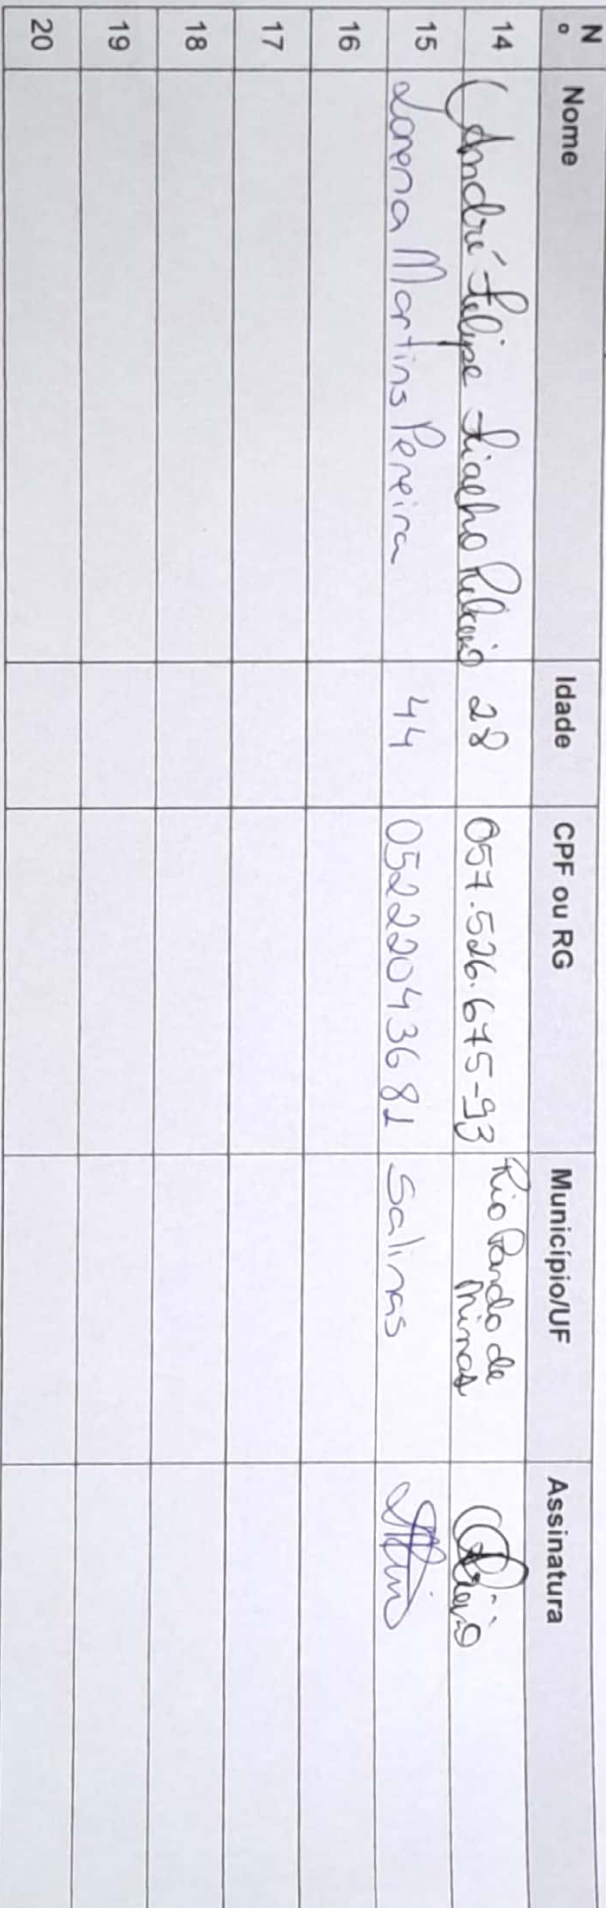 Nº Nome Idade CPF ou RG Município/UF Assinatura
14 André Felipe Fialho Ribeiro 28 057.526.675-93 Rio Pardo de Minas
15 Lorena Martins Pereira 44 05222043681 Salinas
16
17
18
19
20